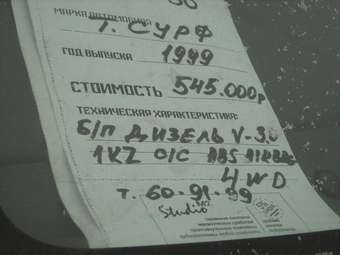 МАРКА АВТОМОБИЛЯ
Т. СУРФ
ГОД ВЫПУСКА 1999
СТОИМОСТЬ 545.000р
ТЕХНИЧЕСКАЯ ХАРАКТЕРИСТИКА:
Б/П ДИЗЕЛЬ V-3,0
1KZ О/С ABS AIRBAG
4WD
Т. 60-91-99
Studio